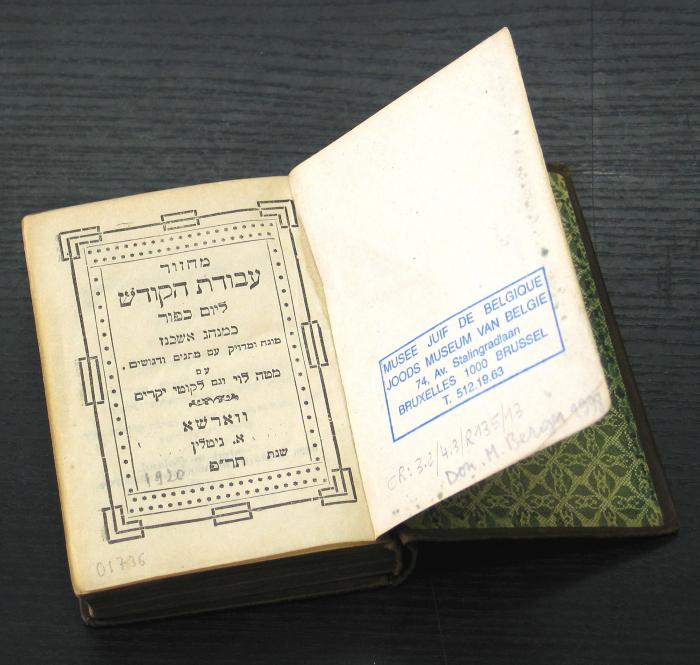 מחזור
עבודת הקודש
ליום כפור
כמנהג אשכנז
מוגה ומדויק עם מתגים והגושים.
עם
מטה לוי וגם לקוטי יקרים
ווארשא
א. גיטלין
שנת תר״פ
1920
01736
MUSEE JUIF DE BELGIQUE
JOODS MUSEUM VAN BELGIE
74, Av. Stalingradlaan
BRUXELLES 1000 BRUSSEL
T. 512.19.63
CR: 3.2/4.3/R135/13
Don. M. Berger